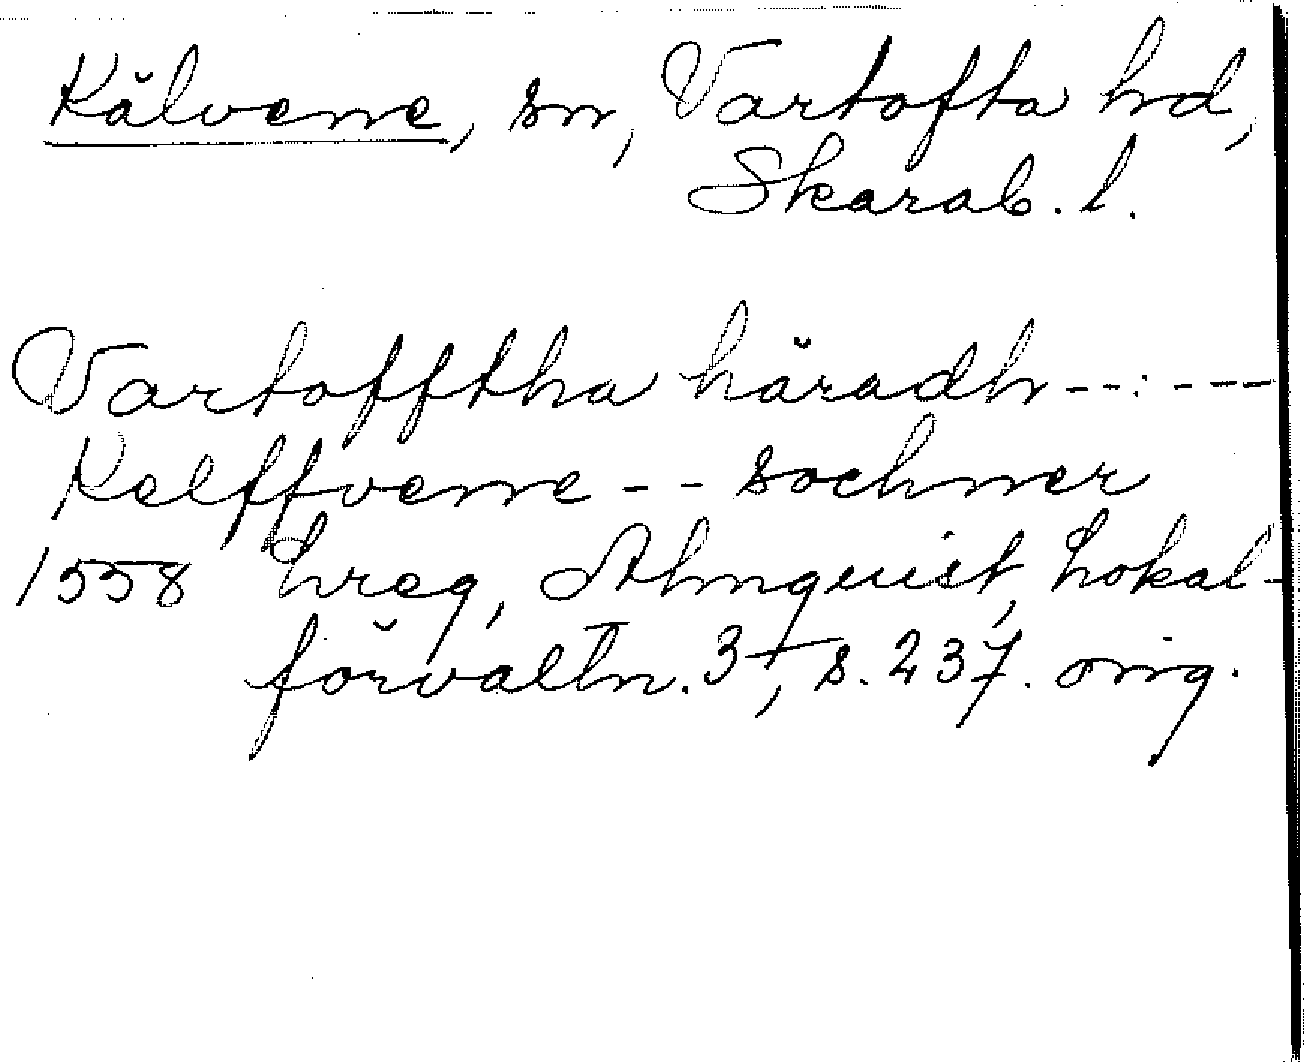 Kälvene, sn, Vartofta hd,
Skarab. l.
Vartofftha häradh --:---
Kelffvene -- sochner
1558 Lreg, Almquist, Lokal-
förvaltn. 3, s. 237. orig.